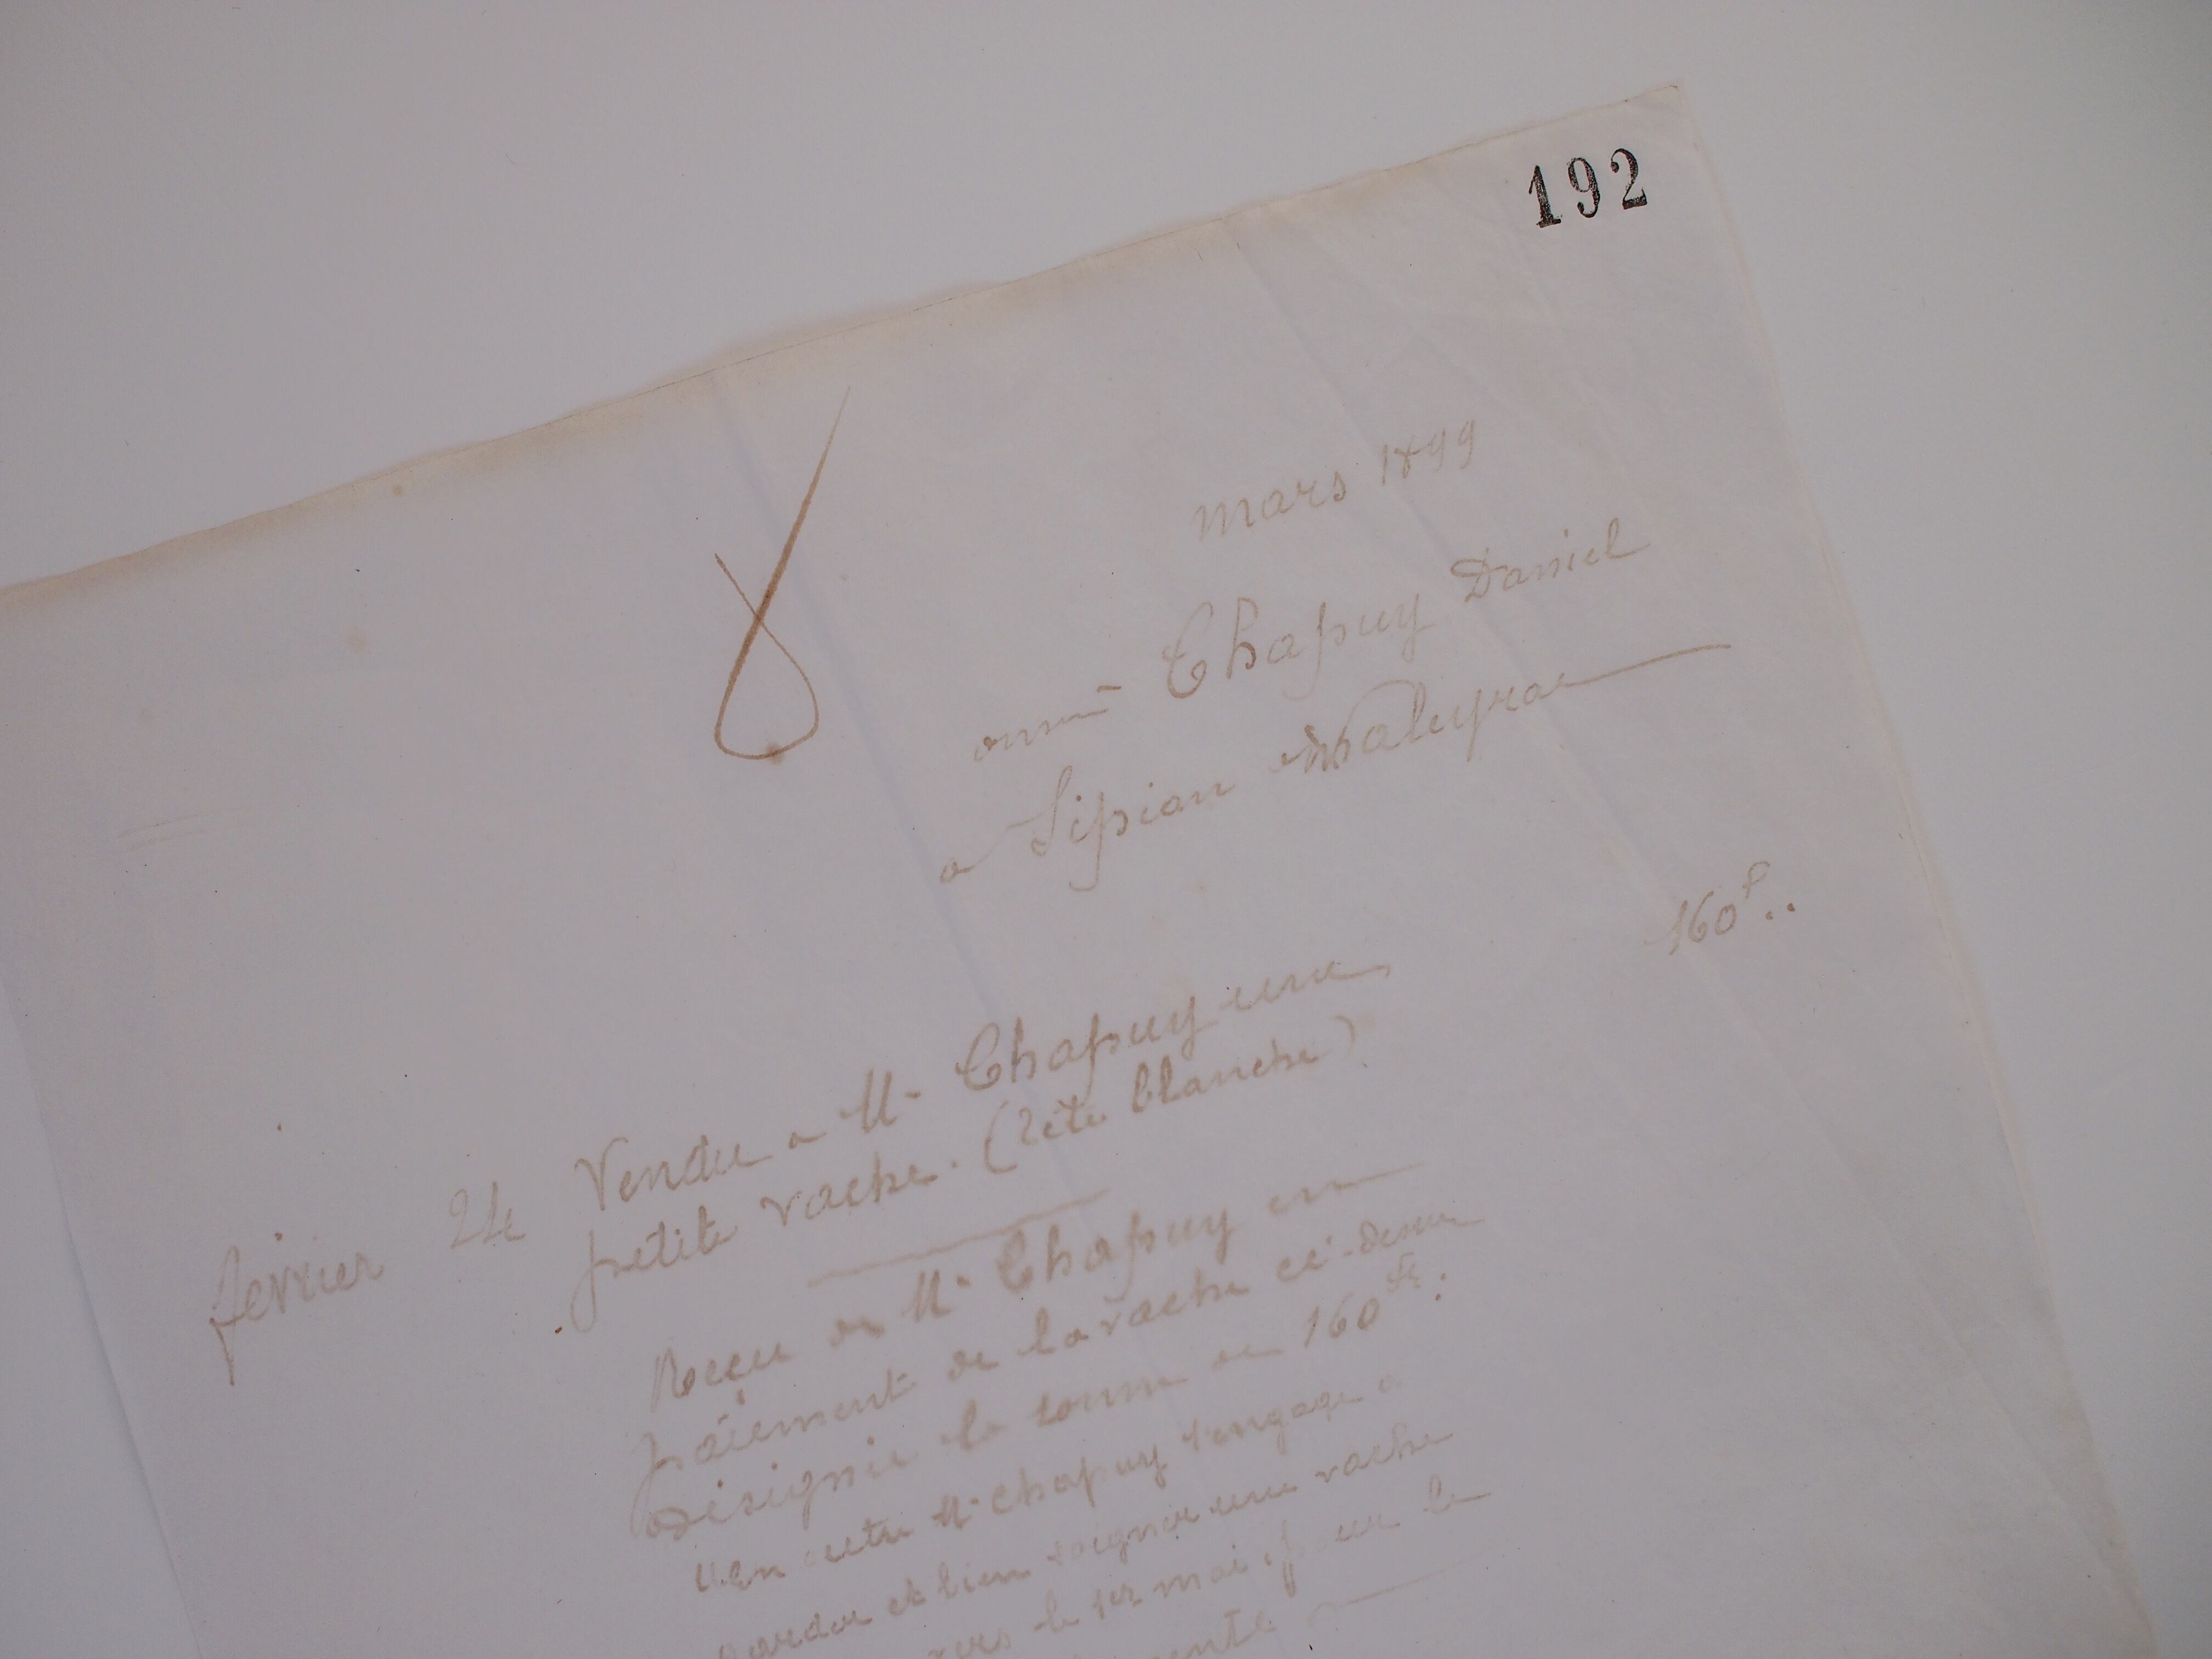 192
8
mars 1899
Chapuy Daniel
a Sipian Valeyrac
160f..
février 24 Vendu a Mr Chapuy une
petite vache. (tête blanche)
Reçu de Mr Chapuy en
paiement de la vache ci-dessus
désignée la somme de 160 fr.
En outre Mr Chapuy s'engage a
garder et bien soigner une vache
vers le 1er mai, pour la